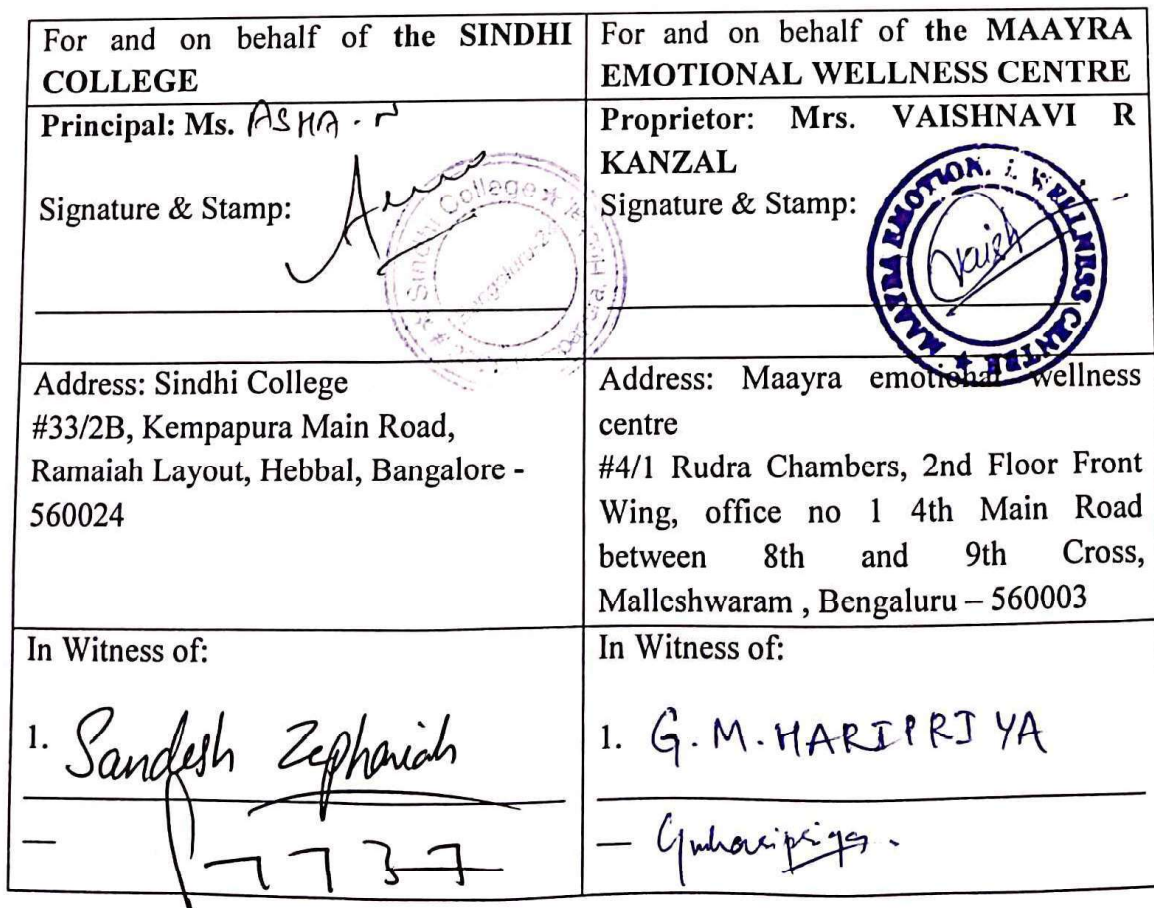 For and on behalf of the SINDHI
COLLEGE
For and on behalf of the MAAYRA
EMOTIONAL WELLNESS CENTRE
Principal: Ms. ASHA . N
Signature & Stamp:
Sindhi College
Proprietor: Mrs. VAISHNAVI R
KANZAL
Signature & Stamp:
MAAYRA EMOTION. L WELLNESS CENTRE ★
Vaish
Address: Sindhi College
#33/2B, Kempapura Main Road,
Ramaiah Layout, Hebbal, Bangalore -
560024
Address: Maayra emotional wellness
centre
#4/1 Rudra Chambers, 2nd Floor Front
Wing, office no 1 4th Main Road
between 8th and 9th Cross,
Malleshwaram , Bengaluru – 560003
In Witness of:
1. Sandesh Zephaniah
In Witness of:
1. G. M. HARIPRIYA